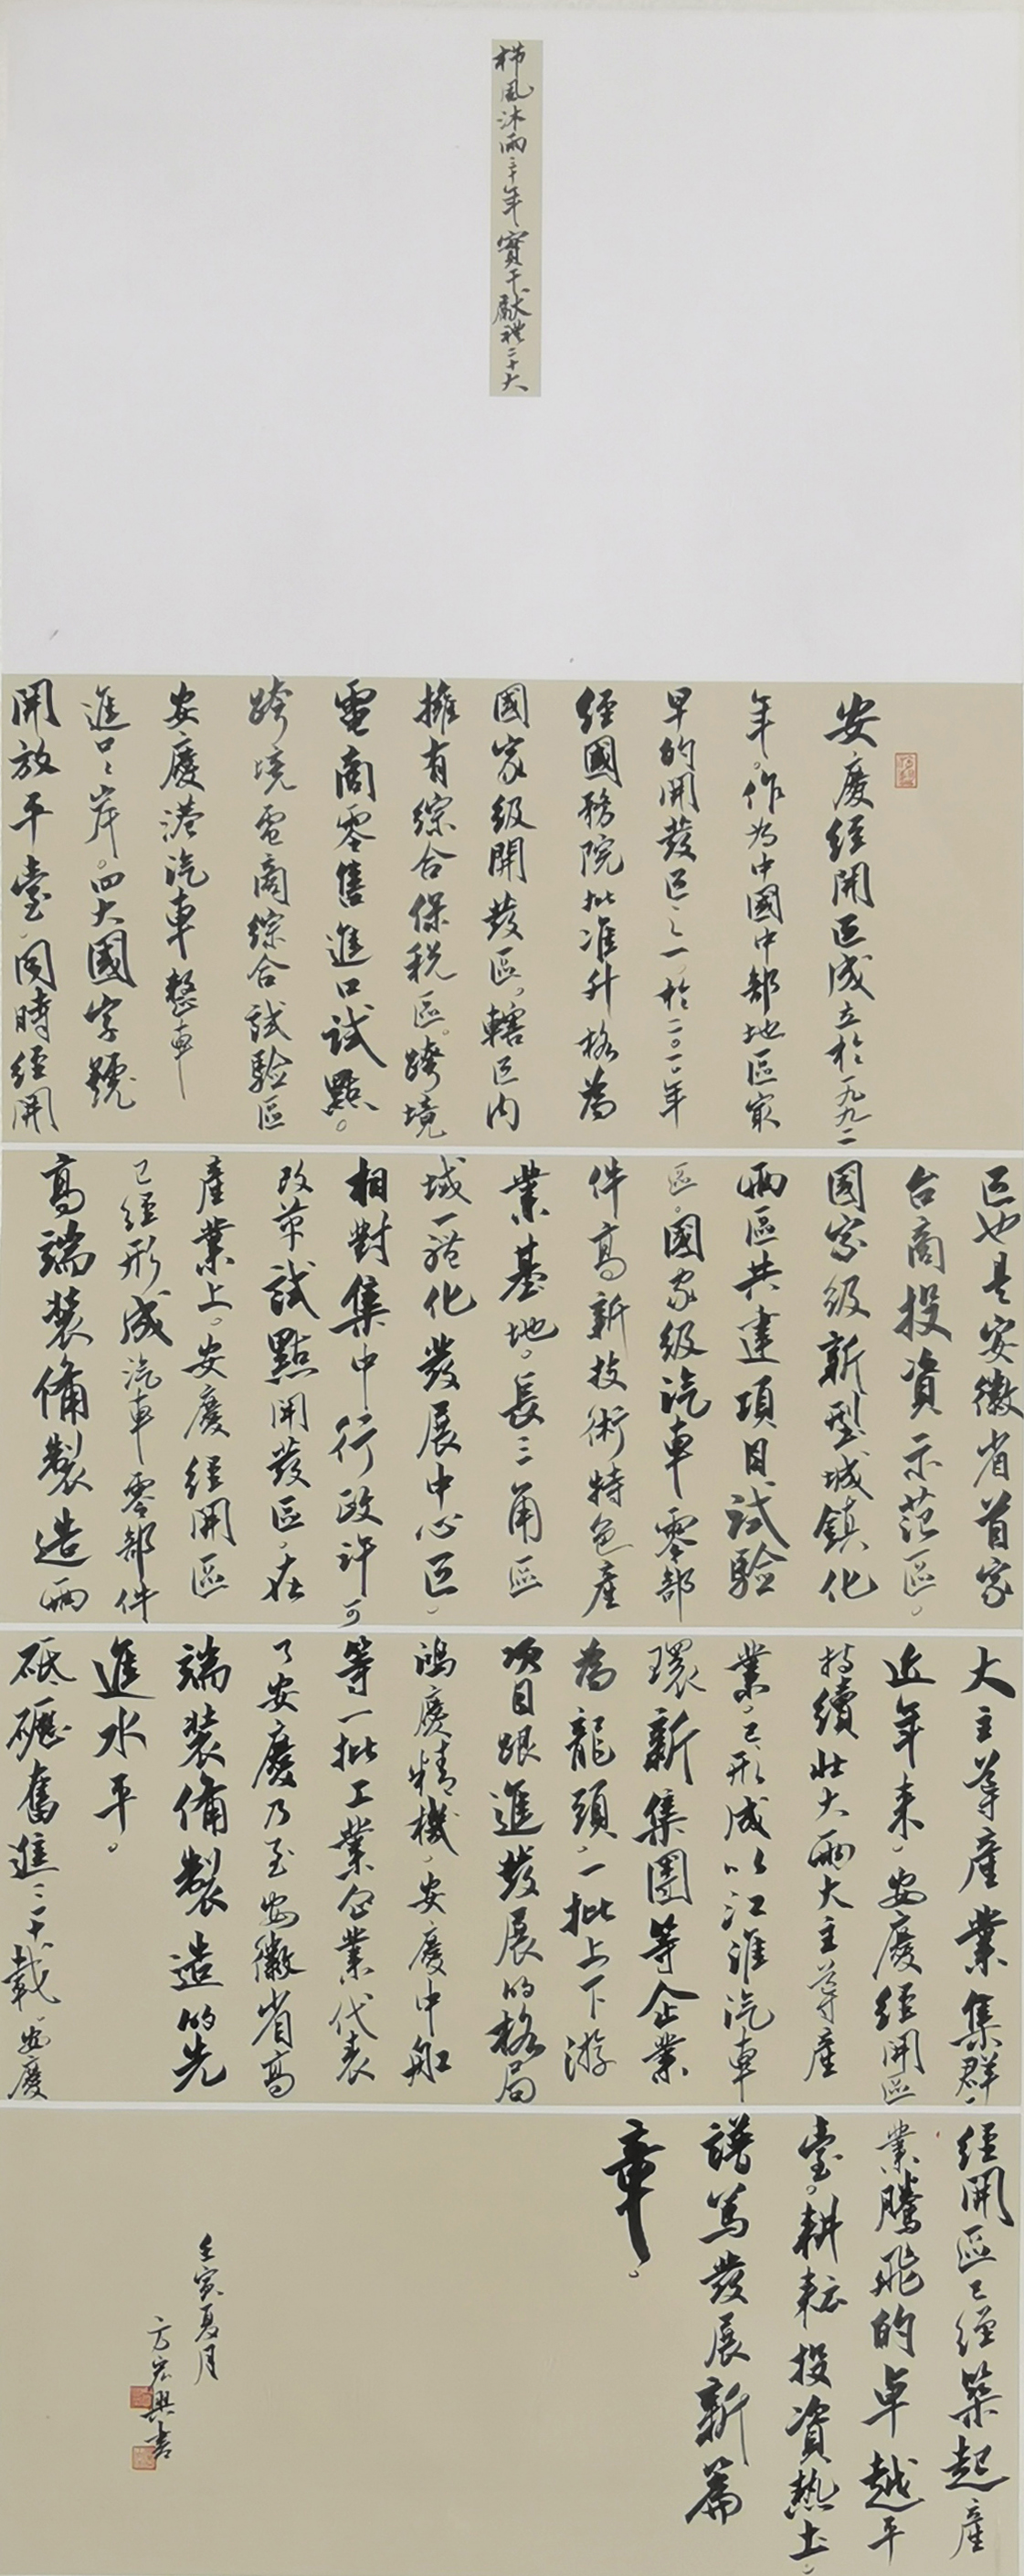 栉風沐雨三十年 實干獻禮二十大
安慶經開區成立於一九九二
年。作为中國中部地區最
早的開發區之一，於二〇一〇年
經國務院批准升格為
國家級開發區，轄區内
擁有綜合保税區。跨境
電商零售進口試點。
跨境電商綜合試驗區
安慶港汽車整車
進口口岸。四大國字號
開放平臺，同時經開
區也是安徽省首家
台商投資示范區。
國家級新型城鎮化
兩區共建項目試驗
區。國家級汽車零部
件高新技術特色産
業基地。長三角區
域一體化發展中心區，
相對集中行政許可
改革試點開發區，在
産業上。安慶經開區
已經形成汽車零部件
高端装備製造兩
大主導産業集群，
近年来，安慶經開區
持續壯大兩大主導産
業，已形成以江淮汽車
環新集團等企業
為龍頭，一批上下游
项目跟進發展的格局
鴻慶精機，安慶中船
等一批工業企業代表
了安慶乃至安徽省高
端装備製造的先
進水平。
砥礪奮進三十載，安慶
經開區已經築起産
業騰飛的卓越平
臺。耕耘投資热土，
譜寫發展新篇
章。
壬寅夏月
方宏興書